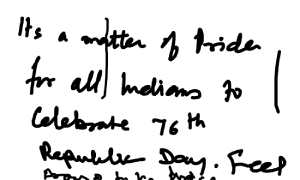 Its a matter of Pride
for all Indians to
Celebrate 76th
Republic Day. Feel